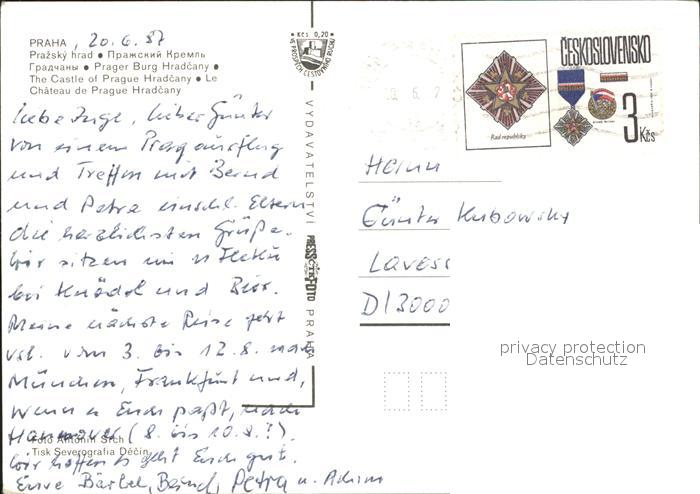 PRAHA, 20.6.87
Pražský hrad • Пражский Кремль
Градчаны • Prager Burg Hradčany •
The Castle of Prague Hradčany • Le
Château de Prague Hradčany
Liebe Inge, lieber Günter
von einem Pragausflug
und Treffen mit Bernd
und Petra einschl. Eltern
die herzlichsten Grüße.
Wir sitzen im U Fleků
bei Knödel und Bier.
Meine nächste Reise geht
vsl. vom 3. bis 12.8. nach
München, Frankfurt und,
wenn es Euch paßt, nach
Hannover (8. bis 10.8.?).
Foto Antonín Srch
Tisk Severografia Děčín
Wir hoffen es geht Euch gut.
Eure Bärbel, Bernd, Petra u. Achim
Kčs 0,20
VE PROSPĚCH CESTOVNÍHO RUCHU
VYDAVATELSTVÍ PRESSFOTO PRAHA
ČTK
Rad republiky
ČESKOSLOVENSKO
3 Kčs
Herrn
Günter Kubowsky
Laves
D/3000
privacy protection
Datenschutz